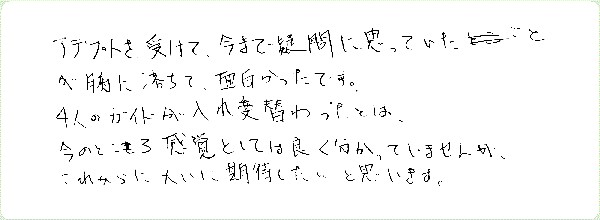 アデプトを受けて、今まで疑問に思っていたこと
が腑に落ちて、面白かったです。
4人のガイドが入れ変替わったとは、
今のところ感覚としては良く分かっていませんが、
これからに大いに期待したいと思います。